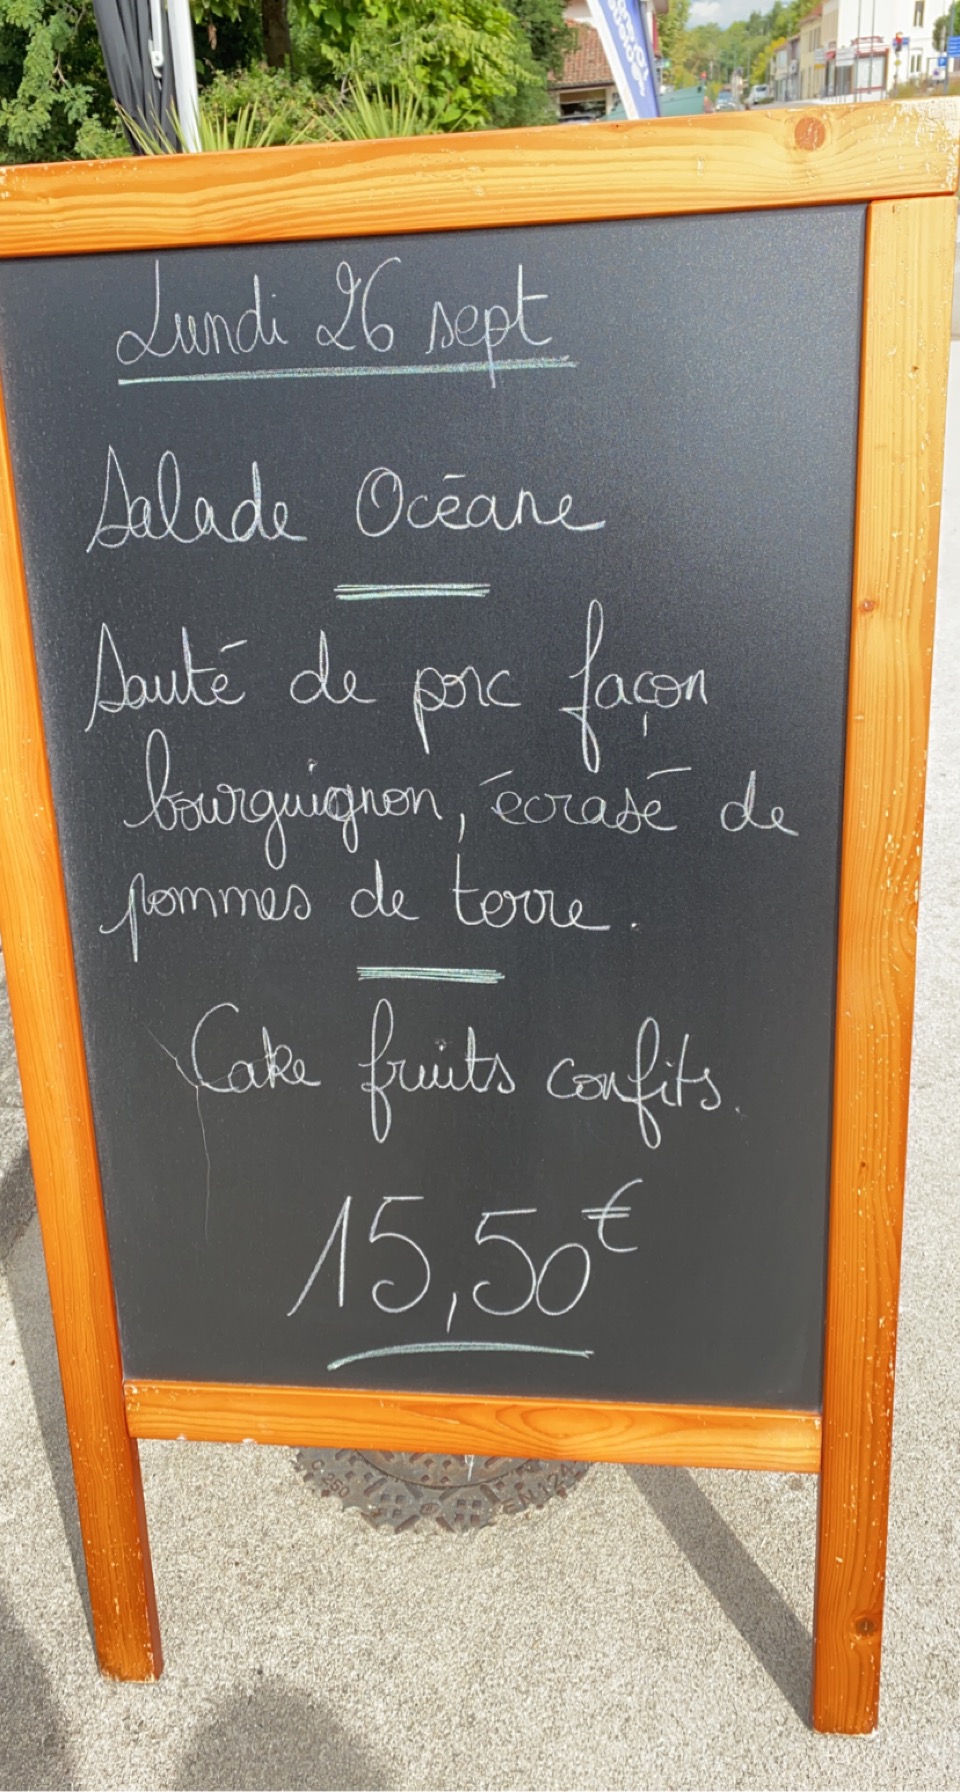 Lundi 26 sept
Salade Océane
Sauté de porc façon
bourguignon, écrasé de
pommes de terre.
Cake fruits confits.
15,50€
C 250
EN 124